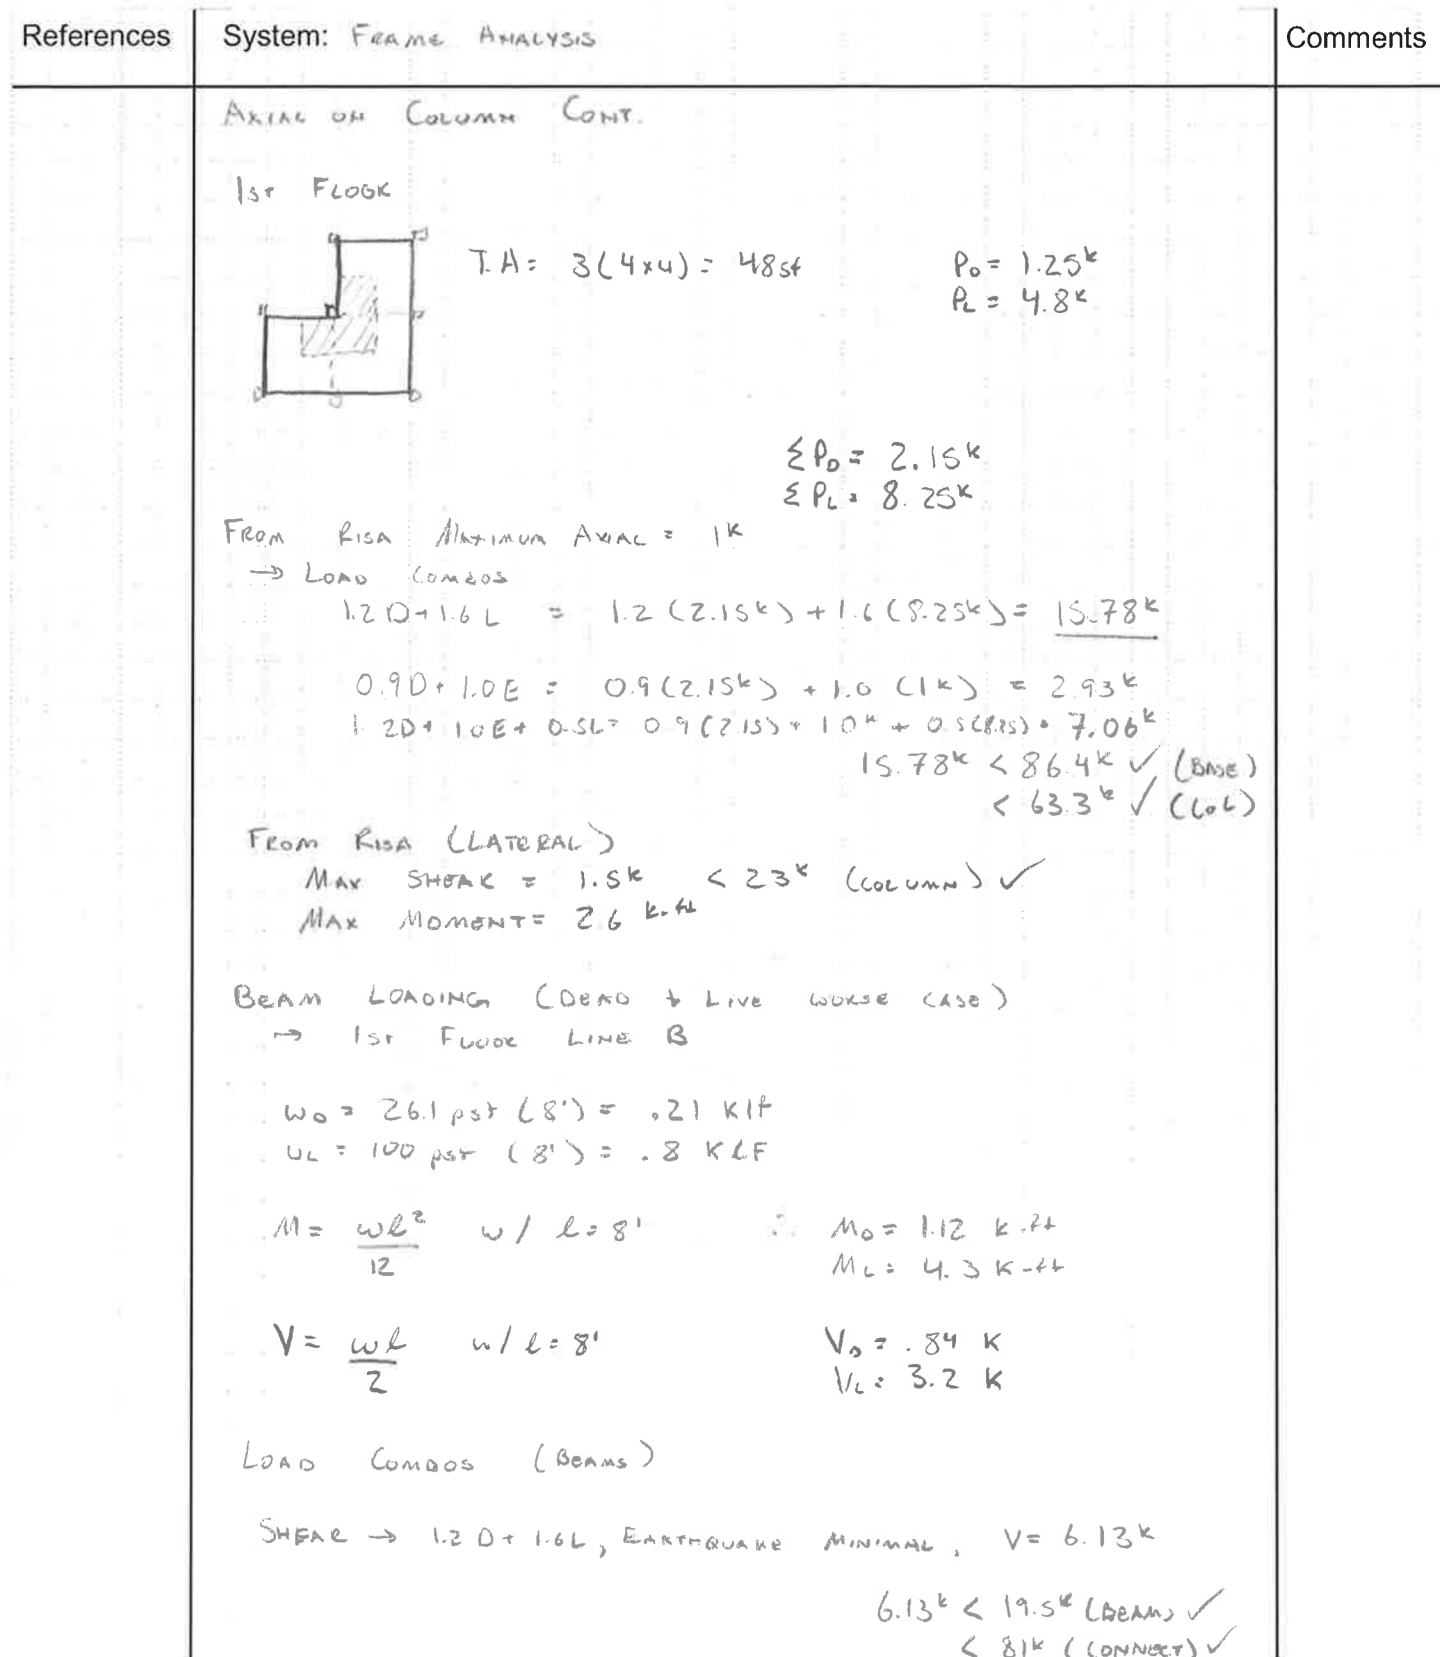 References
System: FRAME ANALYSIS
Comments
AXIAL ON COLUMN CONT.
1ST FLOOR
T.A = 3(4x4) = 48sf
P_D = 1.25^k
P_L = 4.8^k
ΣP_D = 2.15^k
ΣP_L = 8.25^k
FROM RISA MAXIMUM AXIAL = 1^k
→ LOAD COMBOS
1.2D+1.6L = 1.2(2.15^k)+1.6(8.25^k) = 15.78^k
0.9D+1.0E = 0.9(2.15^k) + 1.0(1^k) = 2.93^k
1.2D+1.0E+0.5L= 0.9(2.15)+1.0^k+0.5(8.25) = 7.06^k
15.78^k < 86.4^k ✓ (BASE)
< 63.3^k ✓ (COL)
FROM RISA (LATERAL)
MAX SHEAR = 1.5^k < 23^k (COLUMN) ✓
MAX MOMENT = 2.6 k·ft
BEAM LOADING (DEAD + LIVE WORSE CASE)
→ 1ST FLOOR LINE B
w_D = 26.1 psf (8') = .21 Klf
w_L = 100 psf (8') = .8 KLF
M = wl²/12 w/ l=8' ∴ M_D = 1.12 k·ft
M_L = 4.3 K-ft
V = wl/2 w/ l=8' V_D = .84 K
V_L = 3.2 K
LOAD COMBOS (BEAMS)
SHEAR → 1.2D+1.6L, EARTHQUAKE MINIMAL, V= 6.13^k
6.13^k < 19.5^k (BEAM) ✓
< 81^k (CONNECT) ✓